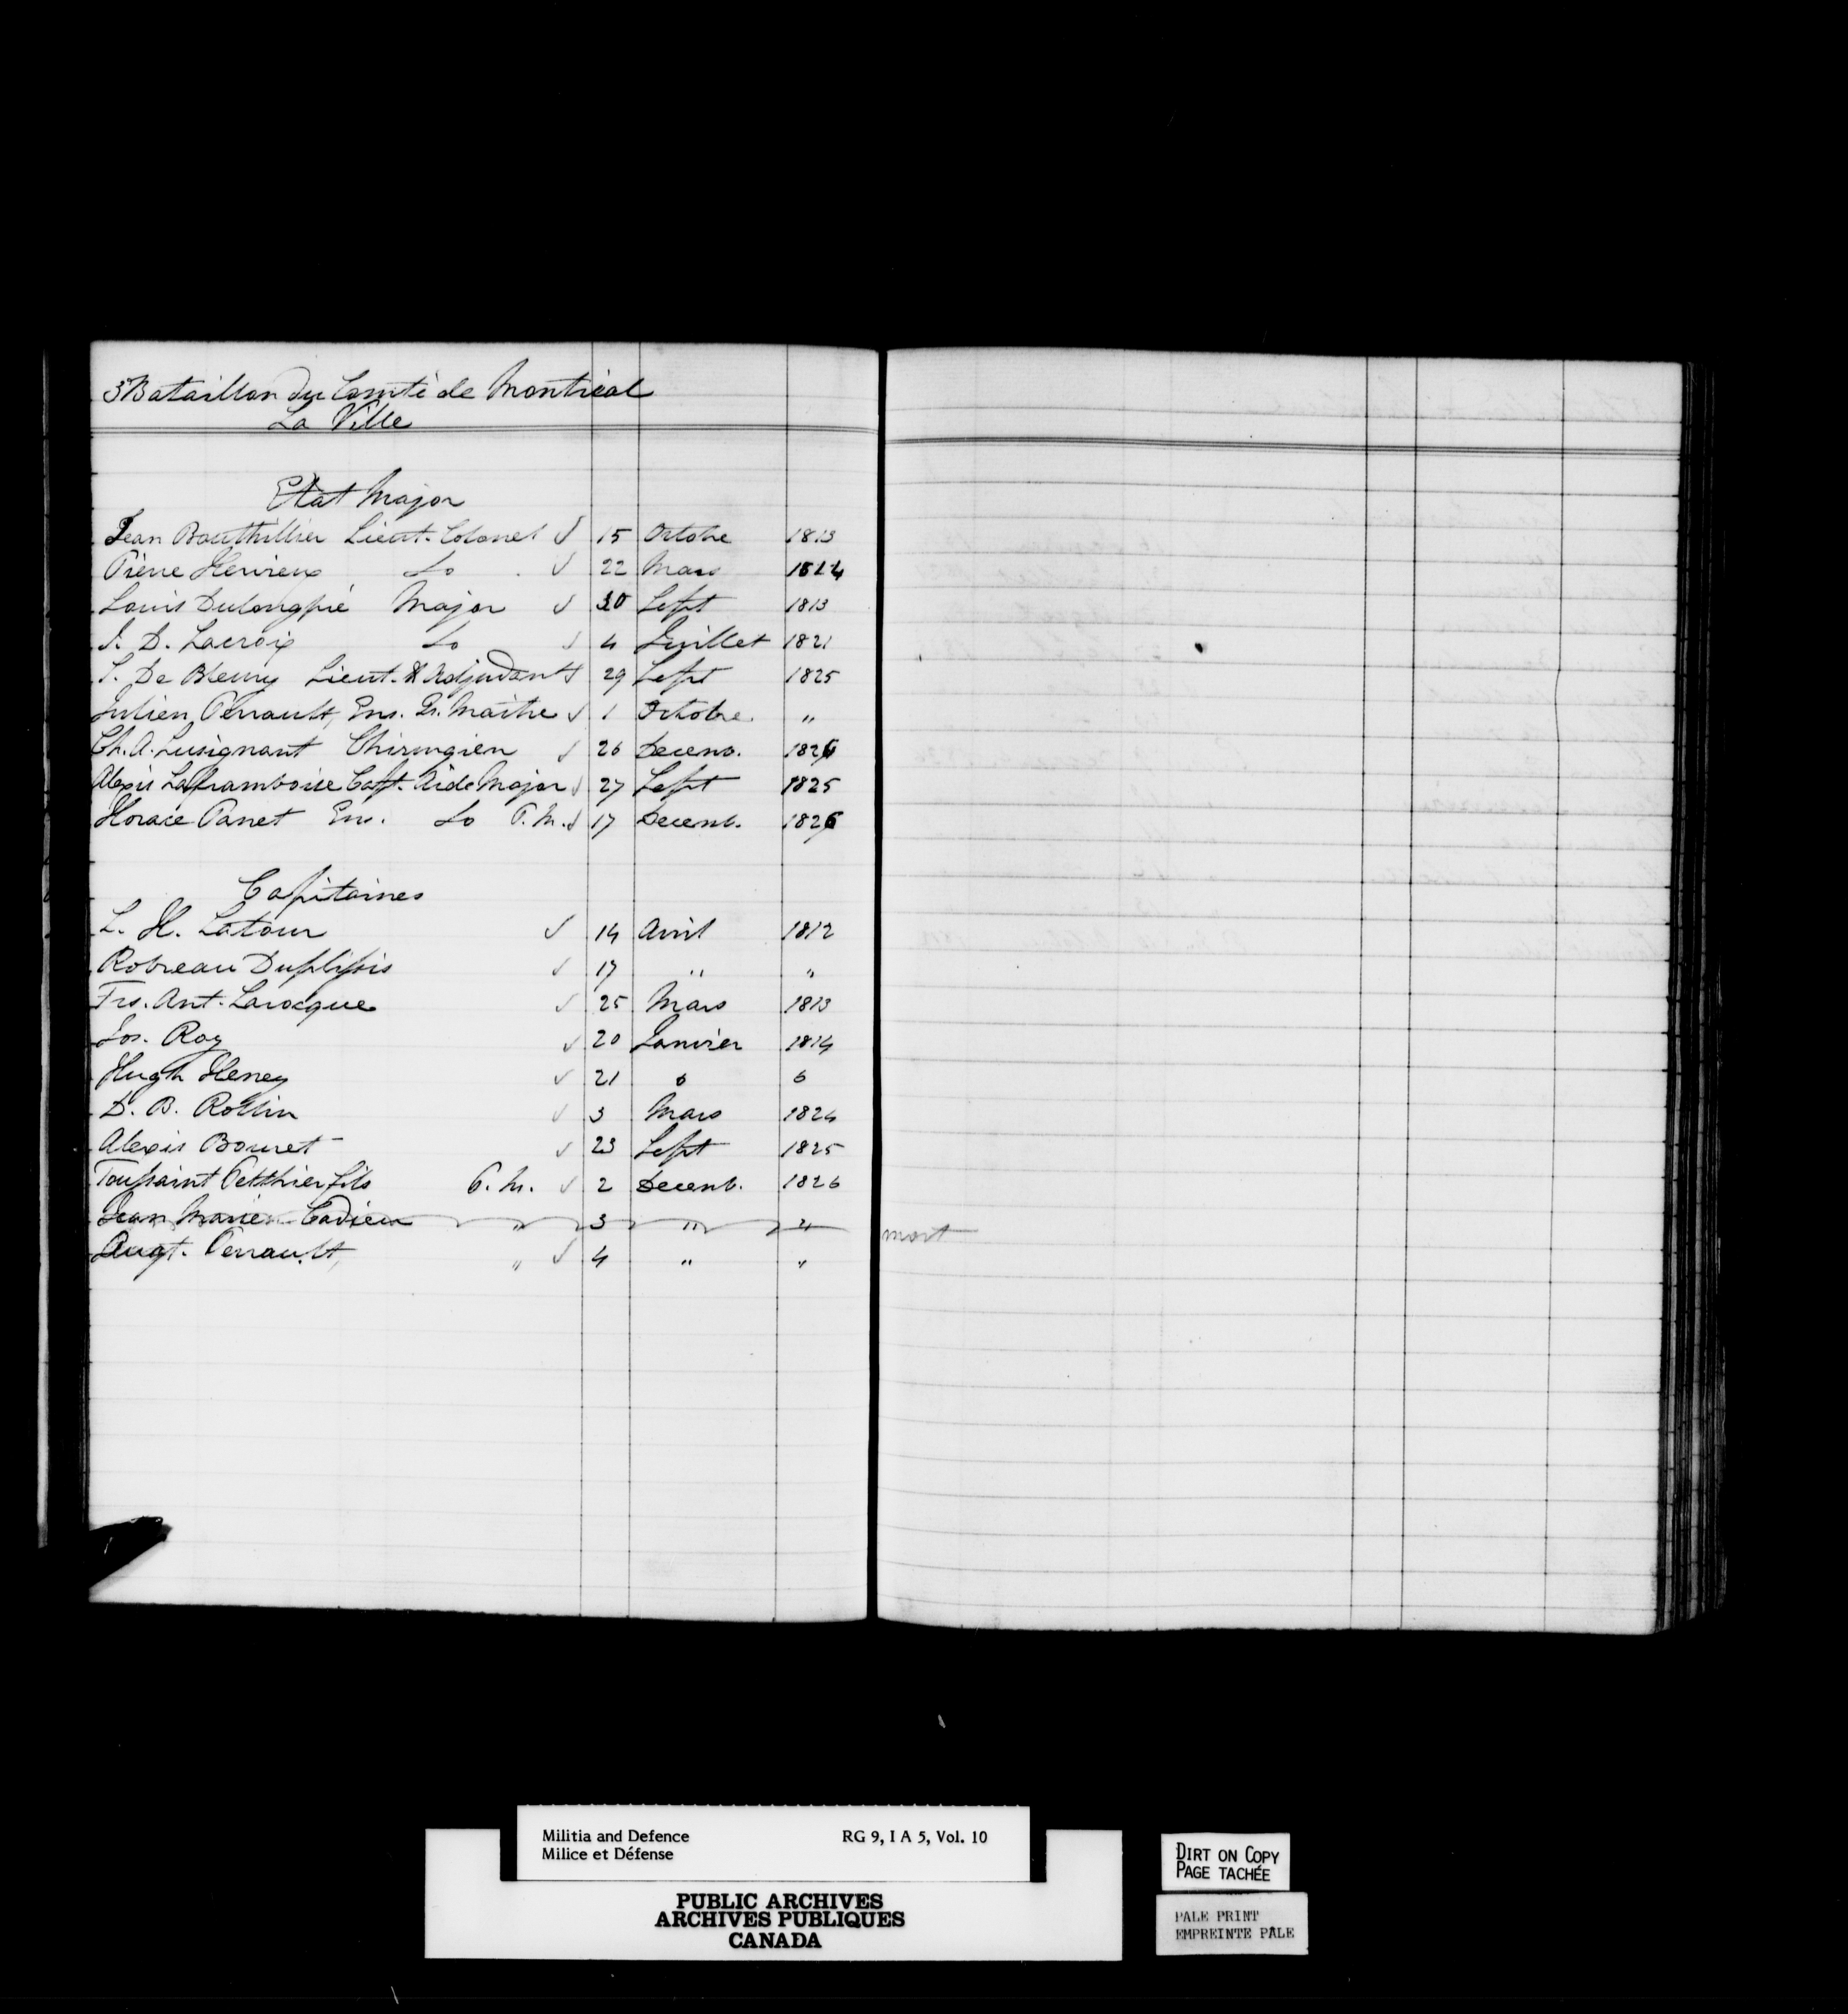 3e Bataillon du Comté de Montréal
La Ville
Etat Major
Jean Bouthillier Lieut. Colonel √ 15 Octobre 1813
Pierre Hervieux Do √ 22 Mars 1824
Louis Dulongpré Major √ 30 Sept 1813
J. D. Lacroix Do √ 4 Juillet 1821
S. De Bleury Lieut. & Adjudant √ 29 Sept 1825
Julien Perrault, Ens. Qr. Maitre √ 1 Octobre. "
Ch. A. Lusignant Chirurgien √ 26 Decemb. 1826
Alexis Laframboise Capt. Aide Major √ 27 Sept 1825
Horace Panet Ens. Do P. M. √ 17 Decemb. 1826
Capitaines
L. H. Latour √ 14 Avril 1812
Robreau Duplissis √ 17 " "
Frs. Ant. Larocque √ 25 Mars 1813
Jos. Roy √ 20 Janvier 1814
Hugh Heney √ 21 " "
D. B. Rollin √ 3 Mars 1824
Alexis Bourret √ 23 Sept 1825
Toussaint Pelthier fils P. M. √ 2 Decemb. 1826
Jean Marie Cadieu " 3 " " mort
Augt. Perrault, " √ 4 " "
Militia and Defence RG 9, I A 5, Vol. 10
Milice et Défense
PUBLIC ARCHIVES
ARCHIVES PUBLIQUES
CANADA
DIRT ON COPY
PAGE TACHÉE
PALE PRINT
EMPREINTE PÂLE